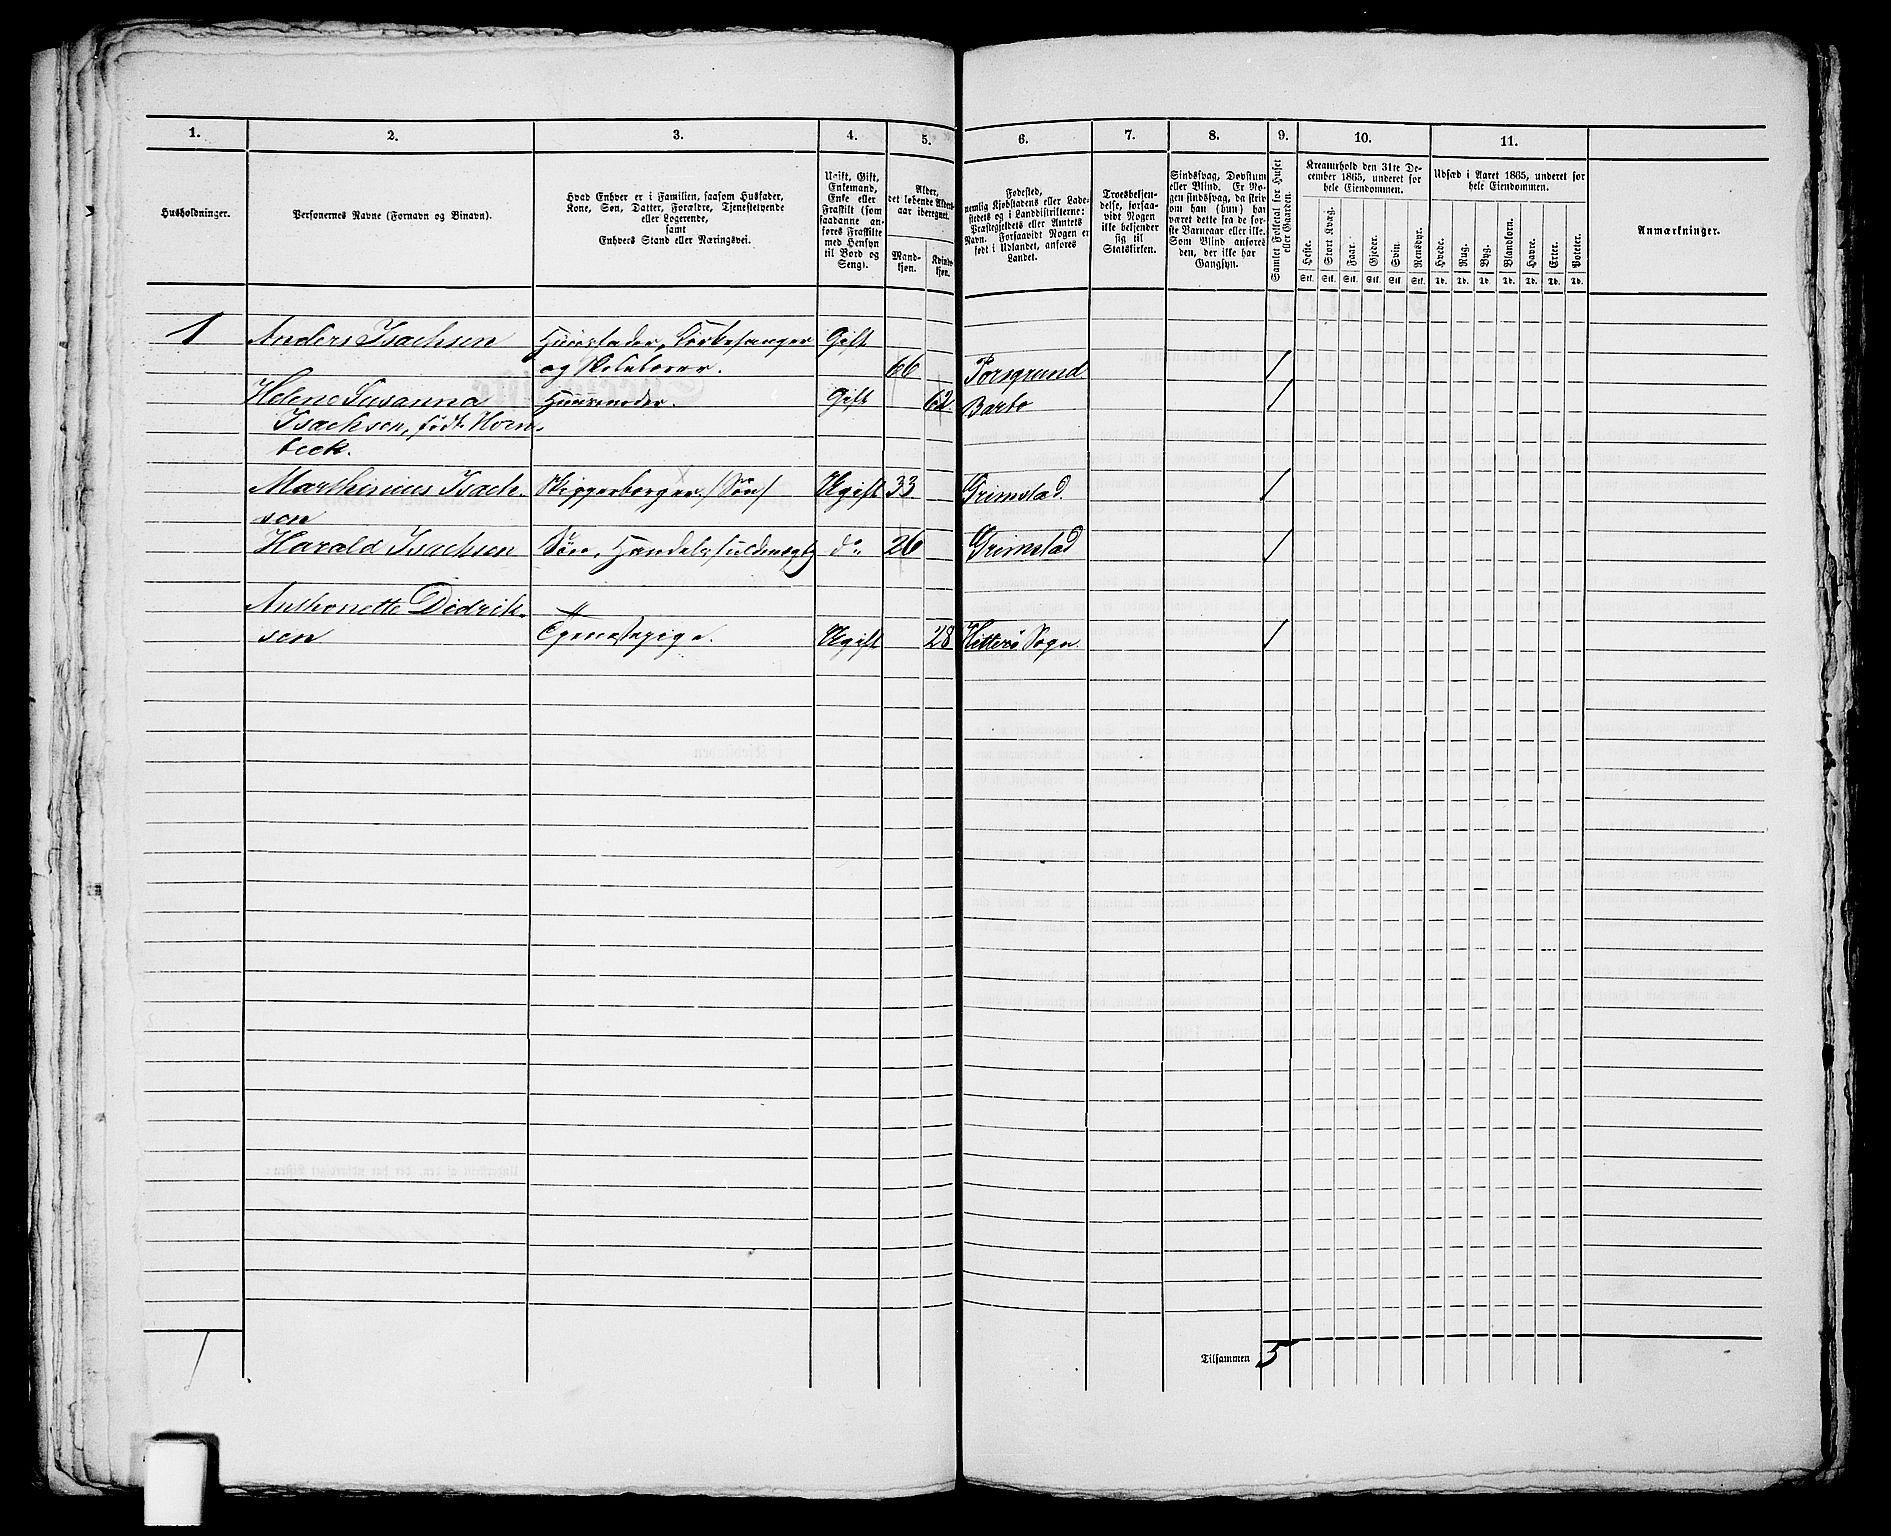 1. 2. 3. 4. 5. 6. 7. 8. 9. 10. 11.
Husholdninger.
Personernes Navne (Fornavn og Binavn).
Hvad Enhver er i Familien, saasom Husfader,
Kone, Søn, Datter, Forældre, Tjenestetyende
eller Logerende,
samt
Enhvers Stand eller Næringsvei.
Ugift, Gift,
Enkemand,
Enke eller
Fraskilt (som
saadanne an-
føres Fraskilte
med Hensyn
til Bord og
Seng).
Alder,
det løbende Alders-
aar iberegnet.
Mand-
kjøn.
Kvinde-
kjøn.
Fødested,
nemlig Kjøbstadens eller Lade-
stedets og i Landdistrikterne:
Præstegjeldets eller Amtets
Navn. Forsaavidt Nogen er
født i Udlandet, anføres
Landet.
Troesbekjen-
delse, forsaa-
vidt Nogen
ikke bekjender
sig til
Statskirken.
Sindssvag, Døvstum
eller Blind. Er No-
gen sindssvag, da skriv
om han (hun) har
været dette fra de før-
ste Barneaar eller ikke.
Som Blind anføres
den, der ikke har
Gangsyn.
Samlet Folketal for Huset
eller Gaarden.
Kreaturhold den 31te De-
cember 1865, underet for
hele Eiendommen.
Heste.
Stort Kvæg.
Faar.
Gjeder.
Svin.
Rensdyr.
Stk. Stk. Stk. Stk. Stk. Stk.
Udsæd i Aaret 1865, underet for
hele Eiendommen.
Hvede.
Rug.
Byg.
Blandkorn.
Havre.
Erter.
Poteter.
Td. Td. Td. Td. Td. Td. Td.
Anmærkninger.
1 Anders Isachsen Huusfader, Kirkesanger Gift
og Skolelærer. 66 Porsgrund /
Helene Susanna Huusmoder. Gift 62 Barbo /
Isachsen, født Horn-
beck.
Marthinius Isach- Skipperborger, /Søn/ Ugift 33 Grimstad /
sen
Harald Isachsen Søn, Handelsfuldmægtig do 26 Grimstad /
Anthonette Didrik- "
sen Tjenestepige. Ugift 28 Hitterø Sogn. /
1
Tilsammen 5